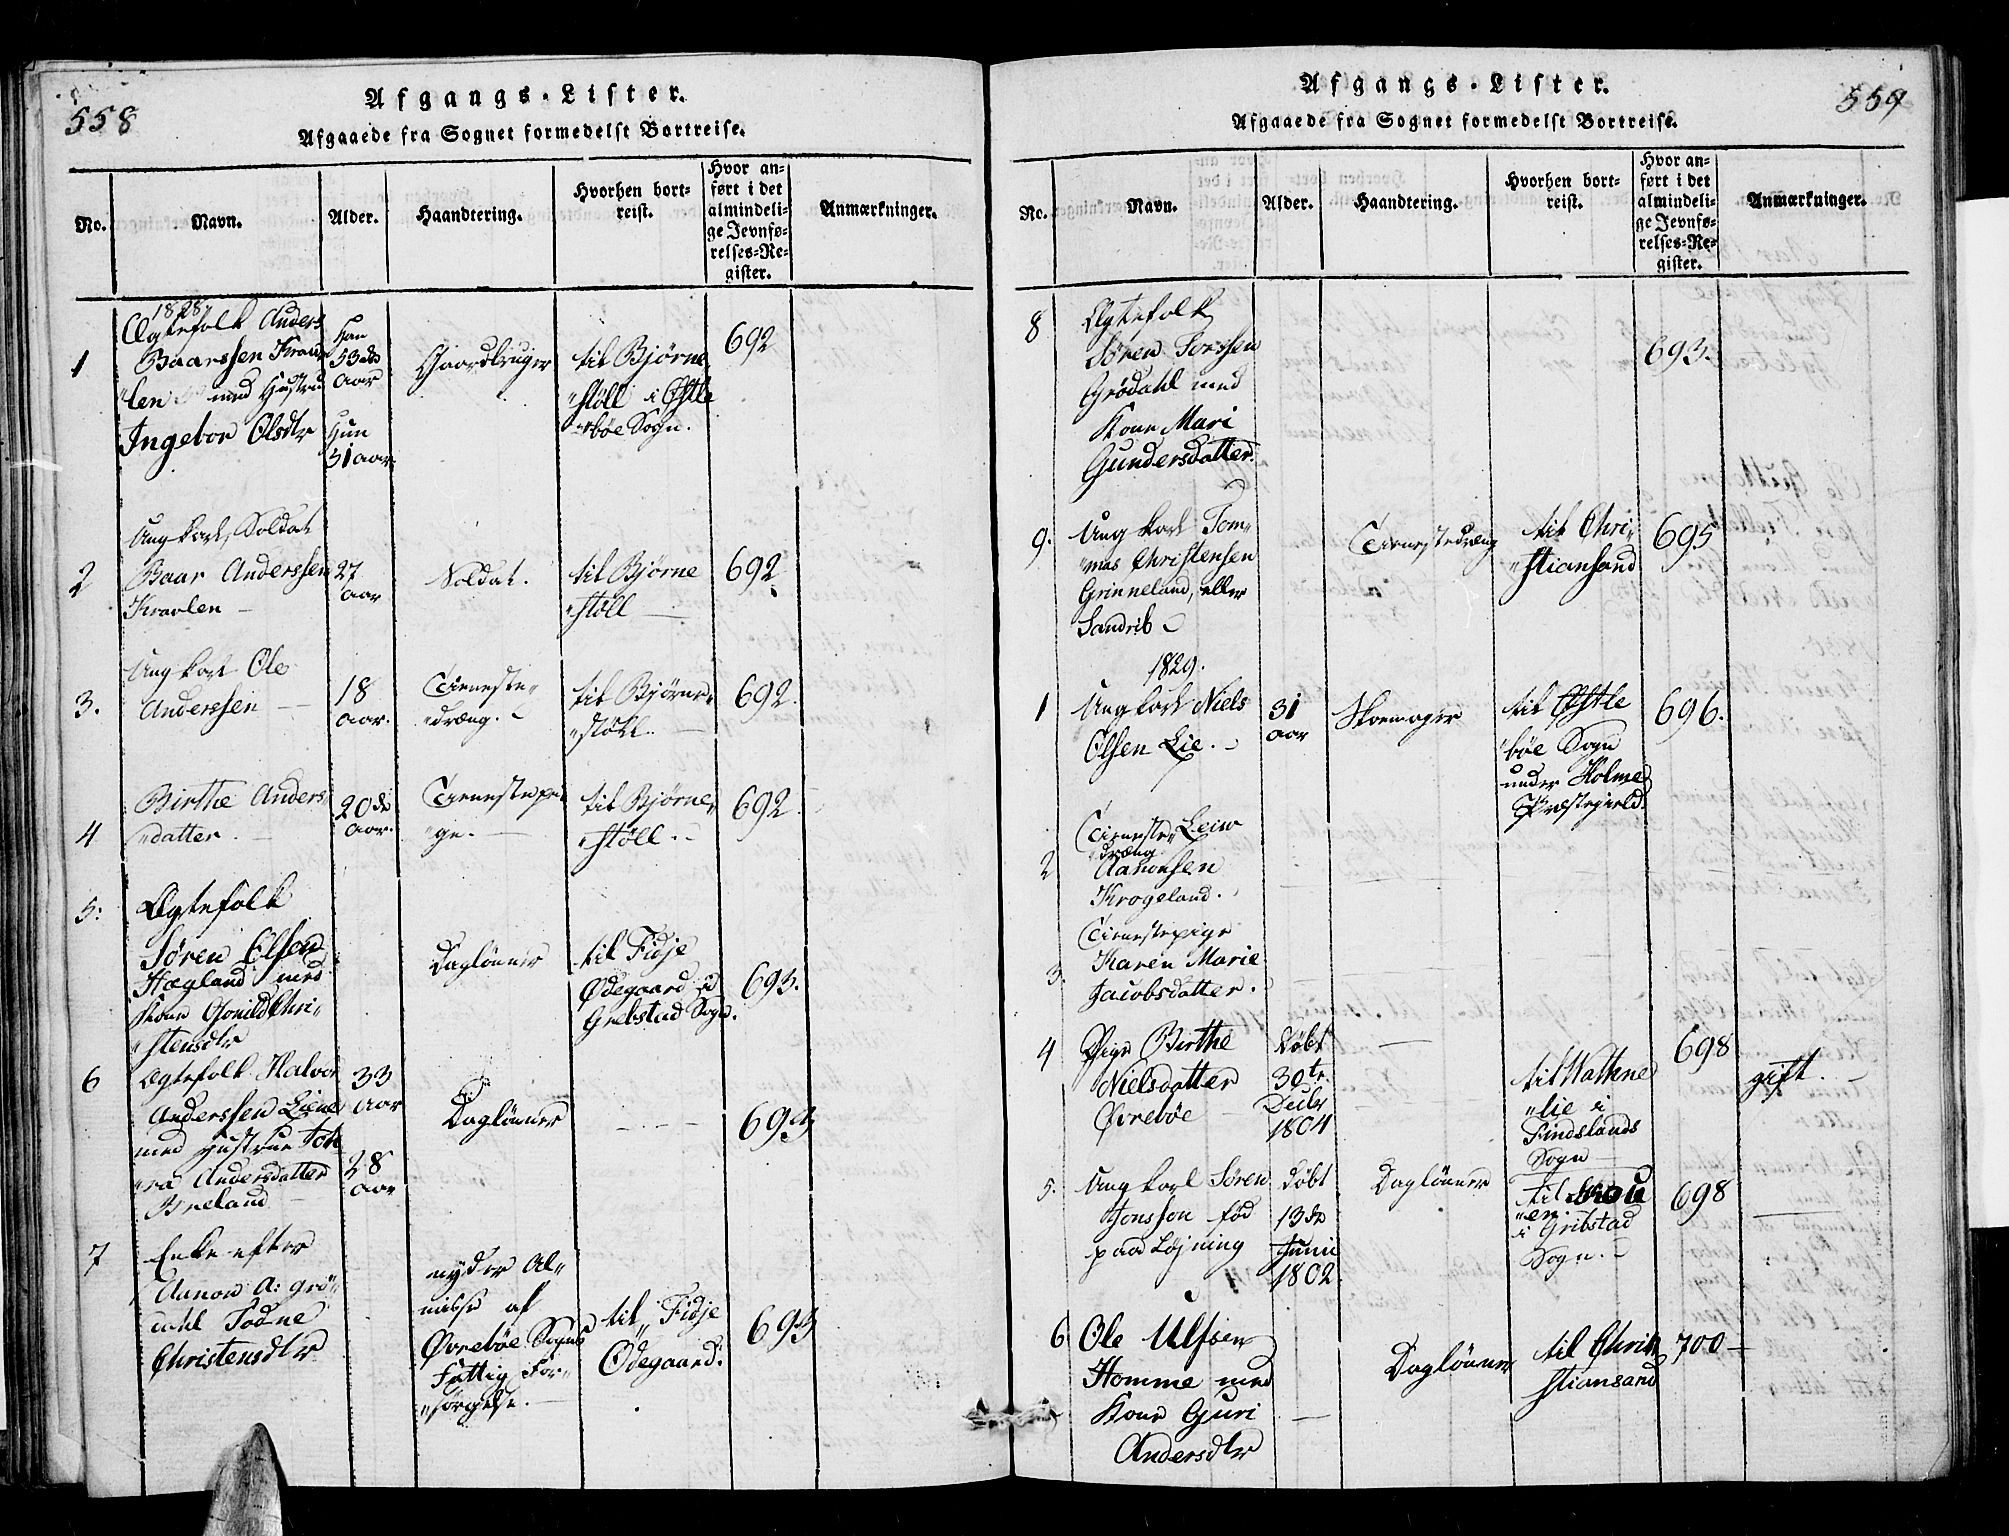 558
Afgangs-Lister.
Afgaaede fra Sognet formedelst Bortreise.
No.
Navn.
Alder.
Haandtering.
Hvorhen bort-
reist.
Hvor an-
ført i det
almindeli-
ge Jevnfø-
relses-Re-
gister.
Anmærkninger.
1828
1
Ægtefolk Anders
Baarssen Kraav
"len med Hustrue
Ingebor Olsdtr
Han
53de
aar
Hun
51 aar
Gaardbruger
til Bjørne
"støll i Østle
"bøe Sogn.
692
2
Ung karl, Soldat
Baar Anderssen
Kravlen
27
aar
Soldat.
til Bjørne
"støll
692
3.
Ung karl Ole
Anderssen
18
aar.
Tieneste-
"dræng.
til Bjørne-
"støll.
692
4
Birthe Anders-
"datter.
20de
aar.
Tienestepi-
"ge.
til Bjørne-
"støll.
692
5.
Ægtefolk
Søren Olsen
Hægland med
Kone Gonild Chri-
"stensdtr
Daglønner
til Fidje
Ødegaard i
Grebstad Sogn.
693.
6
Ægtefolk Halvor
Anderssen Liene
med Hustrue Toh
"ra Andersdatter
Breland
33
aar
28
aar
Daglønner
693
7
Enke efter
Aanon A: Grö-
dahl Todne
Christensdtr
nyder Al-
misse af
Øvrebøe Sogns
Fattig For-
"sørgelse.
til Fidje
Ødegaard.
693
559
Afgangs-Lister.
Afgaaede fra Sognet formedelst Bortreise.
No.
Navn.
Alder.
Haandtering.
Hvorhen bort-
reist.
Hvor an-
ført i det
almindeli-
ge Jevnfø-
relses-Re-
gister.
Anmærkninger.
8
Ægtefolk
Søren Torssen
Grødahl med
Kone Mari
Gundersdatter.
693.
9.
Ung karl Tom-
"mas Christensen
Grinneland, eller
Sandrib
Tienestedræng
til Chri-
"stiansand
695
1829.
1
Ung karl Niels
Olsen Lie.
31
aar
Skoemager
til Østle
bøe Sogn
under Holme
Præstegield.
696.
2
Tieneste-
"dræng Leiw
Aanonsen
Krogeland.
3.
Tienestepige
Karen Marie
Jacobsdatter.
4
Pige Birthe
Nielsdatter
Øvrebøe
Døbt
30te
Decbr
1804
til Wathne
"lie i
Findslands
Sogn
698
gift.
5.
Ung karl Søren
Jonsson fød
paa Løjning
Døbt
13de
Junii
1802
Daglønner
til Strou
"en
i Gribstad
Sogn.
698
6
Ole Ulfsen
Homme med
Kone Guri
Andersdtr
Daglønner
til Chri-
stiansand
700